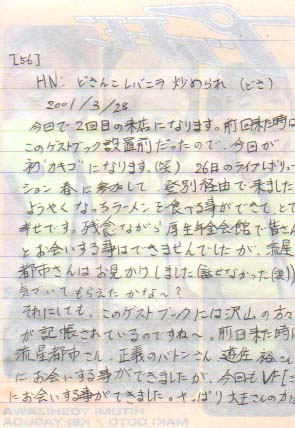 [56]
HN: どさんこレバニラ炒められ (どさ)
2001/3/28
今回で2回目の来店になります。前回来た時は
このゲストブック設置前だったので、今回が
初"カキコ"になります。(笑) 26日のライブレボリュー
ション春に参加して 登別経由で来ました
ようやくなっちラーメンを食べる事ができて とて
幸せです。残念ながら厚生年金会館で皆さん
とお会いする事はできませんでしたが、流星
都市さんはお見かけしました(話せなかった(笑))
気づいてもらえたかな〜?
それにしても、このゲストブックには沢山の方々
が記帳されているのですね〜。前回来た時
流星都市さん、正義のバトンさん、遊佐 裕
にお会いする事ができましたが、今回もVF
にお会いする事ができました。やっぱり大王さんの
HITOMI YOSHIZAWA
MAKI GOTO / KEI YASUDA